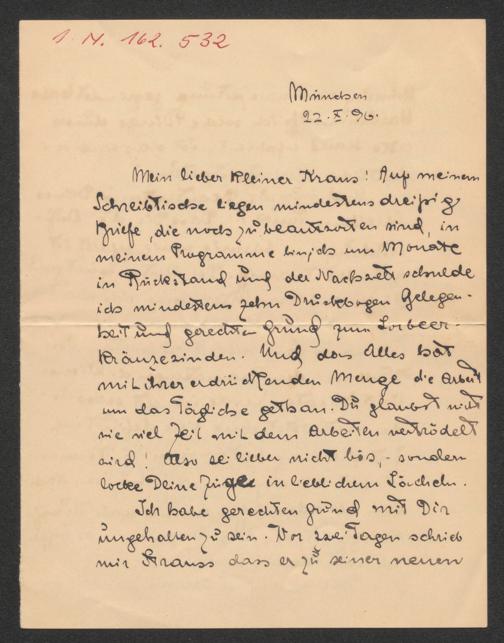 I. N. 162.532
München
22.X.96.
Mein lieber kleiner Kraus! Auf meinem
Schreibtische liegen mindestens dreißig
Briefe, die noch zu beantworten sind, in
meinem Programme bin ich um Monate
in Rückstand und der Nachwelt schulde
ich mindestens zehn Druckbogen Gelegen-
heit und gerechten Grund zum Lorbeer-
kränzewinden. Und das Alles hat
mit ihrer erdrückenden Menge die Arbeit
um das Tägliche gethan. Du glaubst nicht
wie viel Zeit mit dem Arbeiten vertrödelt
wird! Also sei lieber nicht bös, - sondern
locke Deine Züge in lieblichem Lächeln.
Ich habe gerechten Grund mit Dir
ungehalten zu sein. Vor zwei Tagen schrieb
mir Strauss dass er zu seiner neuen